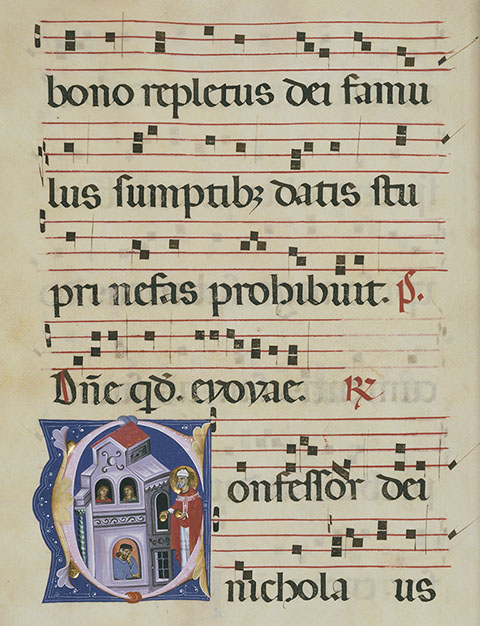 bono repletus dei famu
lus sumptibꝫ datis stu
pri nefas prohibuit. p̃.
Dn̄e qď. evovae. ℞
Confessor dei
nichola us